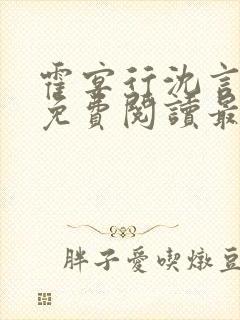 霍宴行沈言
免費閱讀最
胖子愛喫燉豆